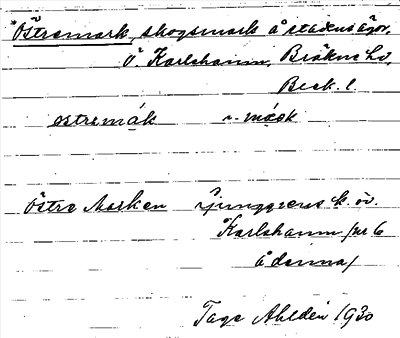 *Östremark, skogsmark å stadens ägor,
Ö. Karlshamn, Bräkne hd,
Blek. l.
östrемák
Östra Marken Ljunggrens k. öv.
Karlshamn /nr 6
å denna/
Tage Ahldén 1930